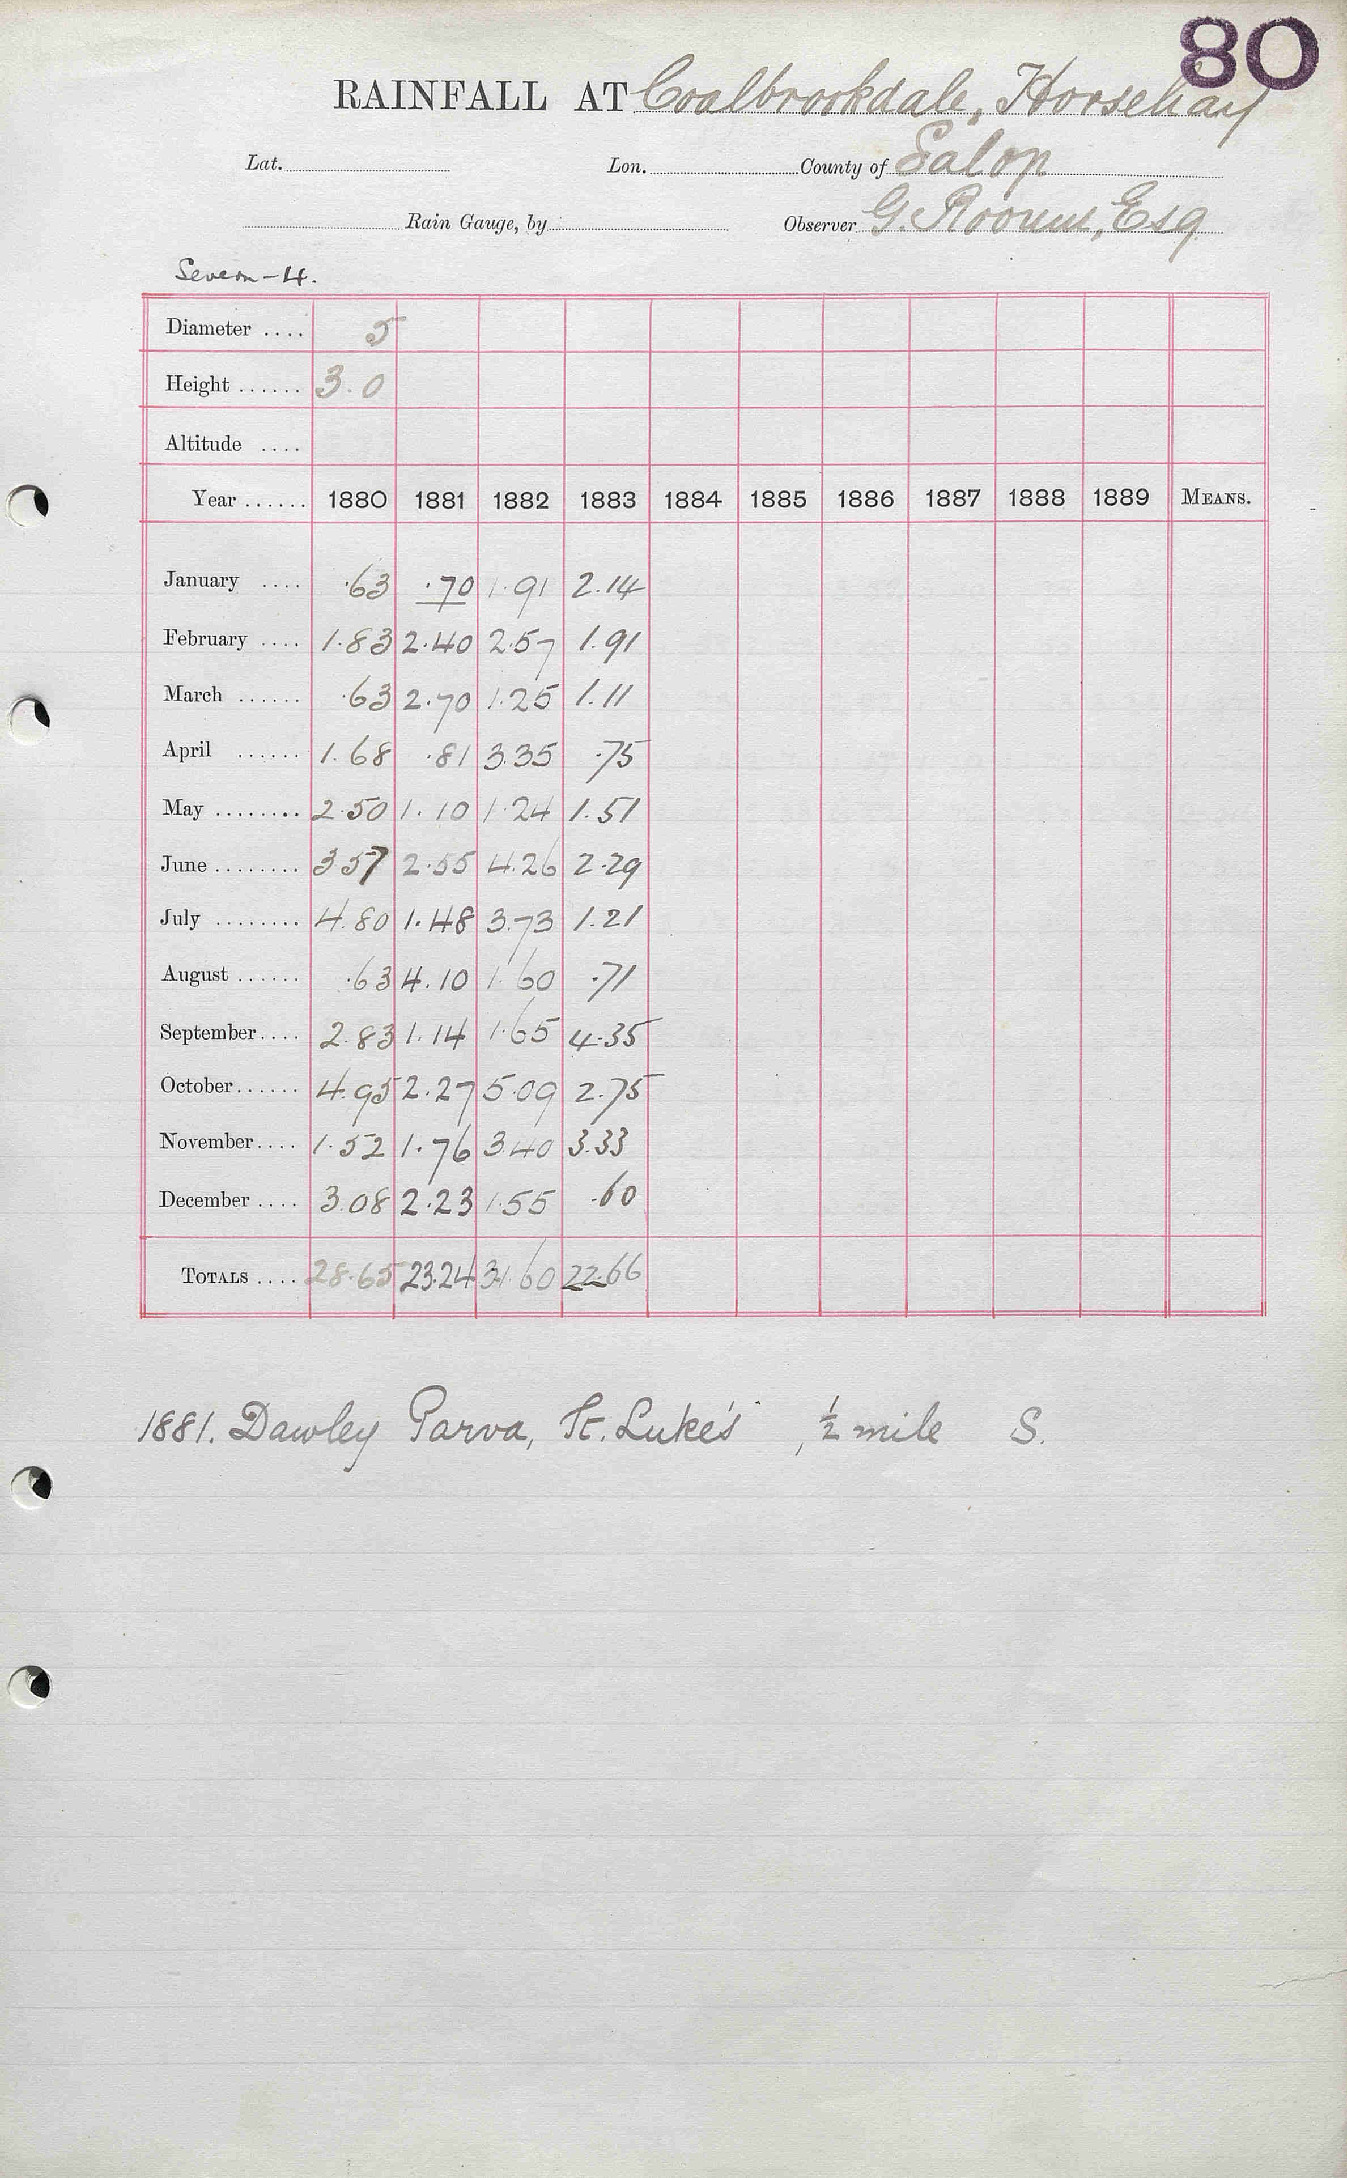 80
RAINFALL AT Coalbrookdale, Horsehay
Lat. Lon. County of Salop
Rain Gauge, by Observer G. Esq
Severn-4.
Diameter .... 5
Height ...... 3.0
Altitude ....
Year ...... 1880 1881 1882 1883 1884 1885 1886 1887 1888 1889 MEANS.
January .... .63 .70 1.91 2.14
February .... 1.83 2.40 2.57 1.91
March ...... .63 2.70 1.25 1.11
April ...... 1.68 .81 3.35 .75
May ........ 2.50 1.10 1.24 1.51
June ........ 3 57 2.55 4.26 2.29
July ........ 4.80 1.48 3.73 1.21
August ...... .63 4.10 1.60 .71
September.... 2.83 1.14 1.65 4.35
October...... 4.95 2.27 5.09 2.75
November.... 1.52 1.76 3.40 3.33
December .... 3.08 2.23 1.55 .60
TOTALS .... 28.65 23.24 31.60 22.66
1881. Dawley Parva, St. Luke's, ½ mile S.